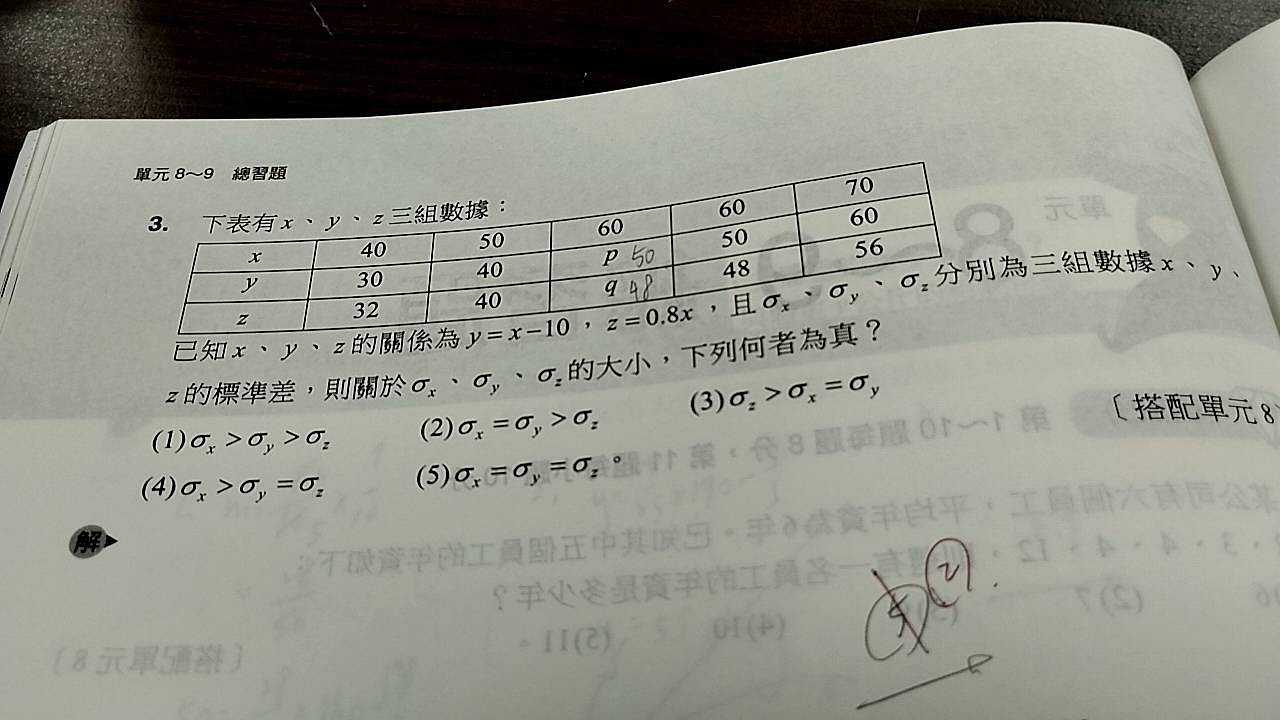 單元 8～9 總習題
3. 下表有 x、y、z 三組數據：
x 40 50 60 60 70
y 30 40 p 50 50 60
z 32 40 q 48 48 56
已知 x、y、z 的關係為 y=x−10，z=0.8x，且 σx、σy、σz 分別為三組數據 x、y、
z 的標準差，則關於 σx、σy、σz 的大小，下列何者為真？
(1) σx > σy > σz (2) σx = σy > σz (3) σz > σx = σy
〔搭配單元 8
(4) σx > σy = σz (5) σx = σy = σz。
解
(2)